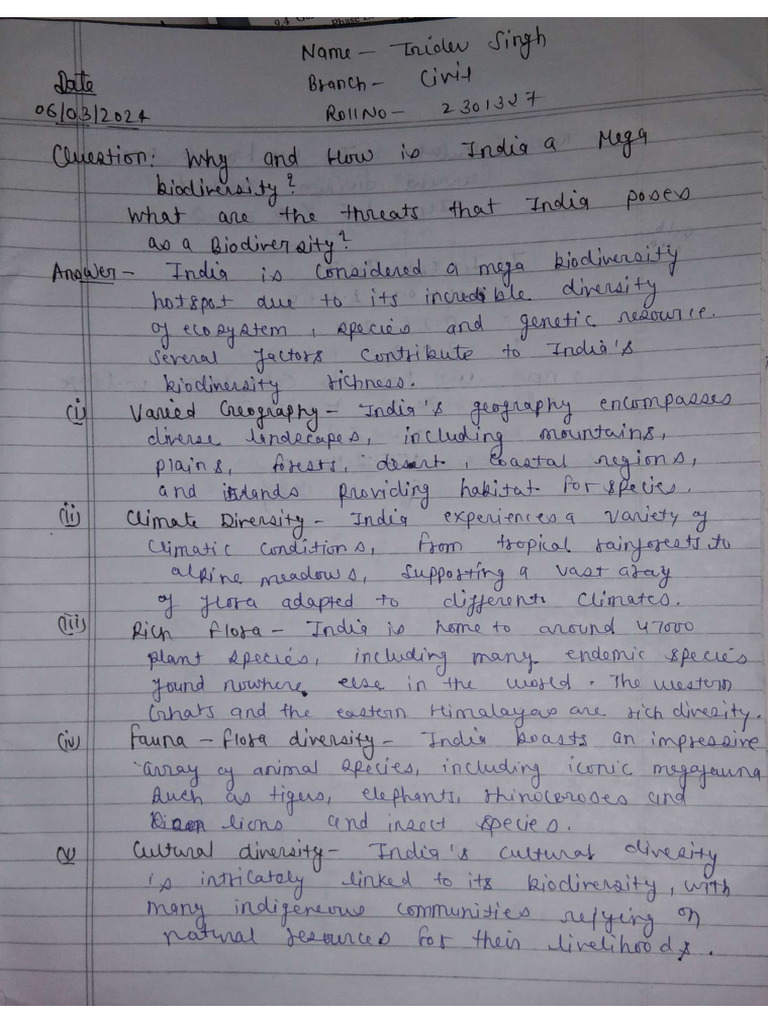 9.4
Phase
Name - Tridev Singh
Date
Branch - Civil
06/03/2024
Roll No - 2301327
Question: Why and How is India a Mega
biodiversity?
What are the threats that India poses
as a Biodiversity?
Answer - India is considered a mega biodiversity
hotspot due to its incredible diversity
of ecosystem, species and genetic resource.
Several factors contribute to India's
biodiversity richness.
(i) Varied Geography - India's geography encompasses
diverse landscapes, including mountains,
plains, forests, desert, coastal regions,
and islands providing habitat for species.
(ii) Climate Diversity - India experiences a variety of
climatic conditions, from tropical rainforests to
alpine meadows, supporting a vast array
of flora adapted to different climates.
(iii) Rich flora - India is home to around 47000
plant species, including many endemic species
found nowhere else in the world. The western
Ghats and the eastern Himalayas are rich divesity.
(iv) Fauna - flora diversity - India boasts an impressive
array of animal species, including iconic megafauna
such as tigers, elephants, rhinoceroses and
lions and insect species.
(v) Cultural diversity - India's cultural divesity
is intricately linked to its biodiversity, with
many indigeneous communities relying on
natural resources for their livelihoods.